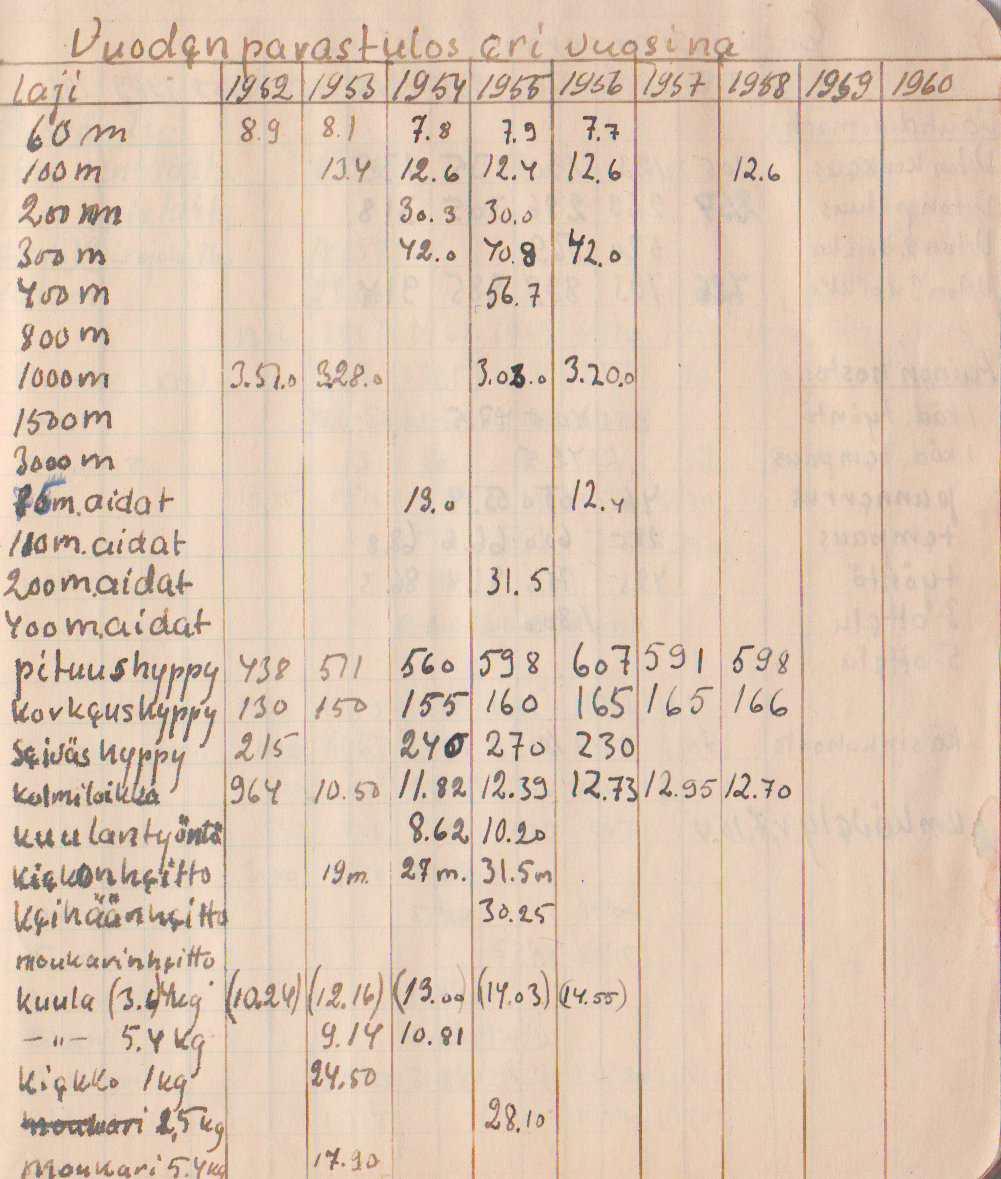 Vuoden parastulos eri vuosina
laji 1952 1953 1954 1955 1956 1957 1958 1959 1960
60 m 8.9 8.1 7.8 7.9 7.7
100 m 13.4 12.6 12.4 12.6 12.6
200 m 30.3 30.0
300 m 42.0 40.8 42.0
400 m 56.7
800 m
1000 m 3.51.0 3.28.0 3.03.0 3.20.0
1500 m
3000 m
m. aidat 13.0 12.4
110 m. aidat
200 m. aidat 31.5
400 m. aidat
pituushyppy 438 511 560 598 607 591 598
korkeushyppy 130 150 155 160 165 165 166
Seiväshyppy 215 240 270 230
kolmiloikka 964 10.50 11.82 12.39 12.73 12.95 12.70
kuulantyöntö 8.62 10.20
kiekonheitto 19 m. 27 m. 31.5 m
keihäänheitto 30.25
moukarinheitto
kuula (3.6) 4 kg (10.24) (12.16) (13.00) (14.03) (14.55)
-"- 5.4 kg 9.14 10.81
kiekko 1 kg 24.50
moukari 2,5 kg 28.10
Moukari 5.4 kg 17.90